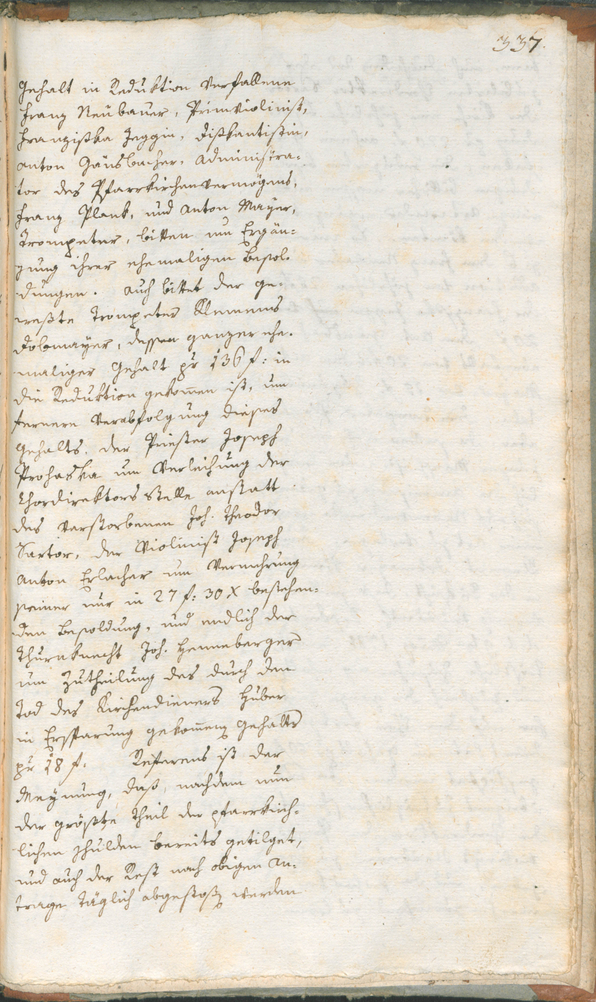 337.
Gehalt in Reduktion verfallene
Franz Neubauer, Primviolinist,
Franziska Zeggin, Diskantistin,
Anton Gänsbacher, Administra-
tor des Pfarrkirchenvermögens,
Franz Plank, und Anton Mayer,
Trompeter, bitten um Ergän-
zung ihrer ehemaligen Besol-
dungen. Auch bittet der ge-
weßte Trompeter Klemens
Dobmayer, dessen ganzer ehe-
maliger Gehalt pr 136 f: in
die Reduktion gekommen ist, um
fernere Verabfolgung dieses
Gehalts, der Priester Joseph
Prohaska um Verleihung der
Chordirektors Stelle anstatt
des verstorbenen Joh. Theodor
Sartor, der Violinist Joseph
Anton Erlacher um Vermehrung
seiner nur in 27 f: 30 X bestehen-
den Besoldung, und endlich der
Thurnknecht Joh. Henneberger
um Zutheilung des durch den
Tod des Kirchendieners Huber
in Ersparung gekommen Gehalts
pr 28 f. Referens ist der
Meynung, daß, nachdem nun
der größte Theil der pfarrkirch-
lichen Schulden bereits getilget,
und auch der Rest nach obigen An-
trage täglich abgestoßen werden